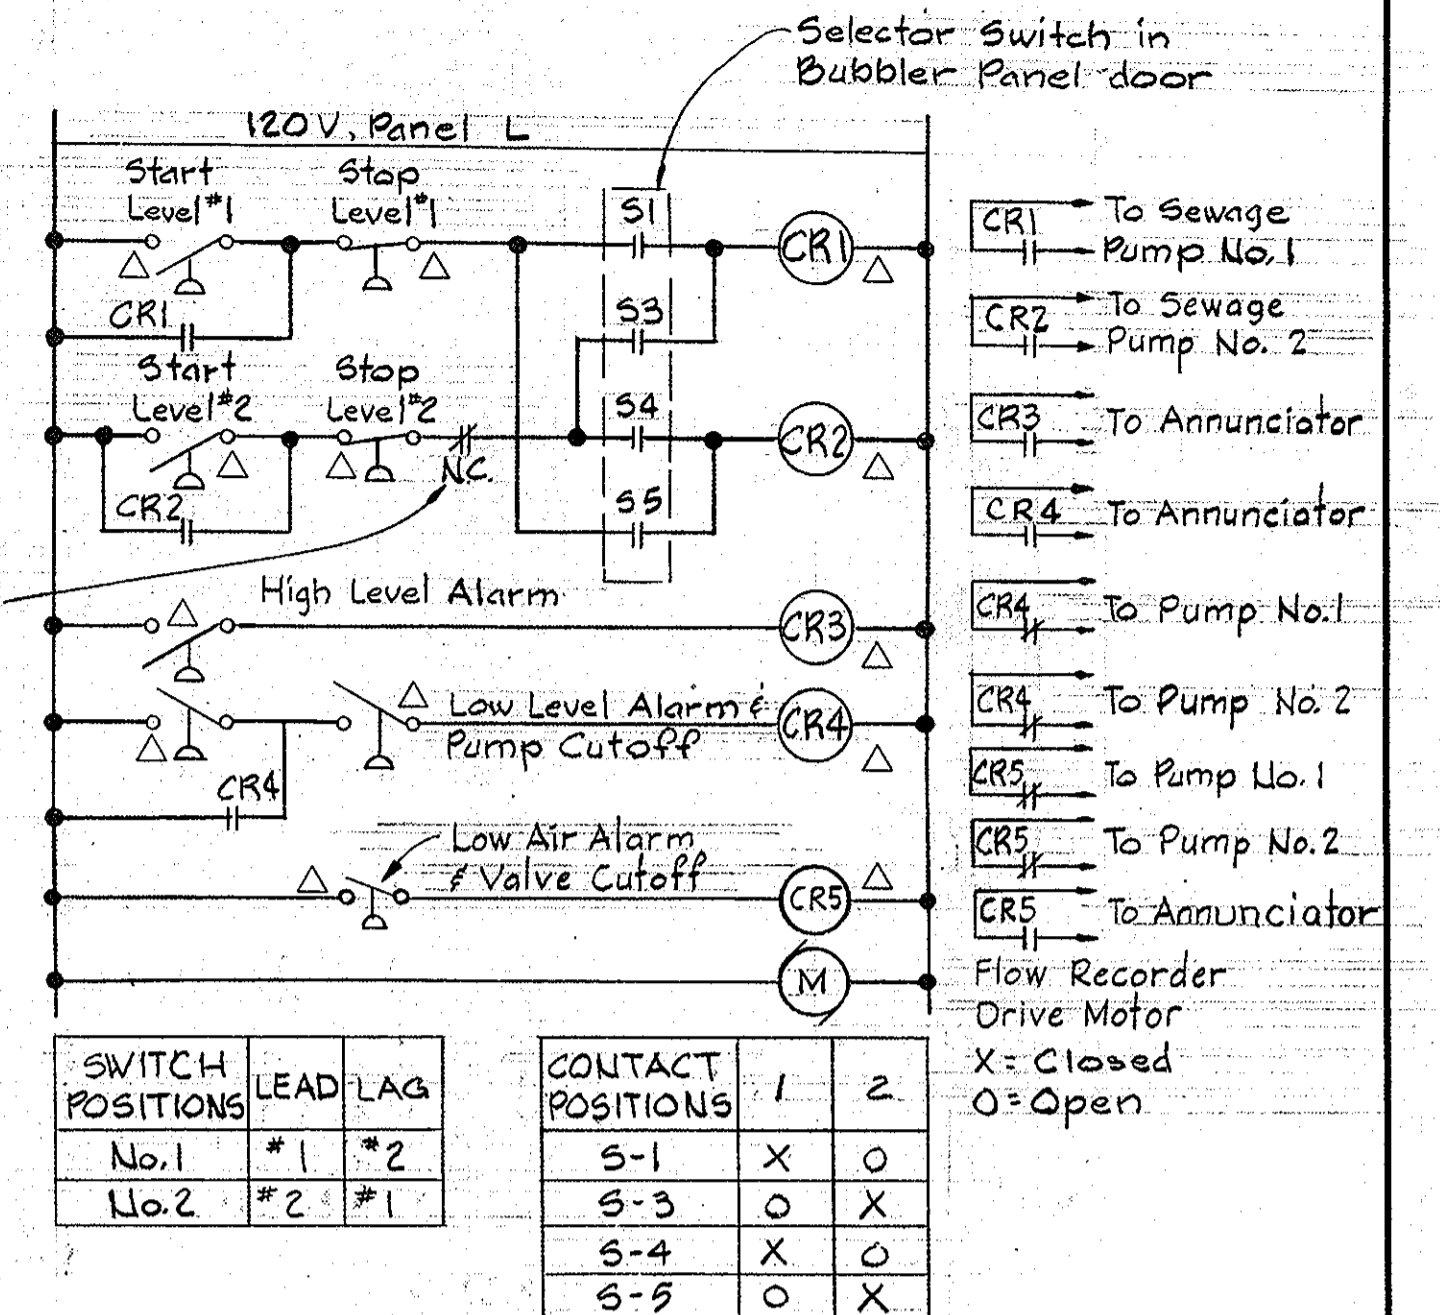 Selector Switch in
Bubbler Panel door
120V, Panel L
Start
Level #1
Stop
Level #1
S1
CR1
CR1
S3
Start
Level #2
Stop
Level #2
S4
CR2
N.C.
CR2
S5
High Level Alarm
CR3
Low Level Alarm &
Pump Cutoff
CR4
CR4
Low Air Alarm
& Valve Cutoff
CR5
M
CR1
To Sewage
Pump No. 1
CR2
To Sewage
Pump No. 2
CR3
To Annunciator
CR4
To Annunciator
CR4
To Pump No.1
CR4
To Pump No. 2
CR5
To Pump No. 1
CR5
To Pump No. 2
CR5
To Annunciator
Flow Recorder
Drive Motor
X = Closed
O = Open
SWITCH POSITIONS LEAD LAG
No.1 #1 #2
No.2 #2 #1
CONTACT POSITIONS 1 2
S-1 X O
S-3 O X
S-4 X O
S-5 O X